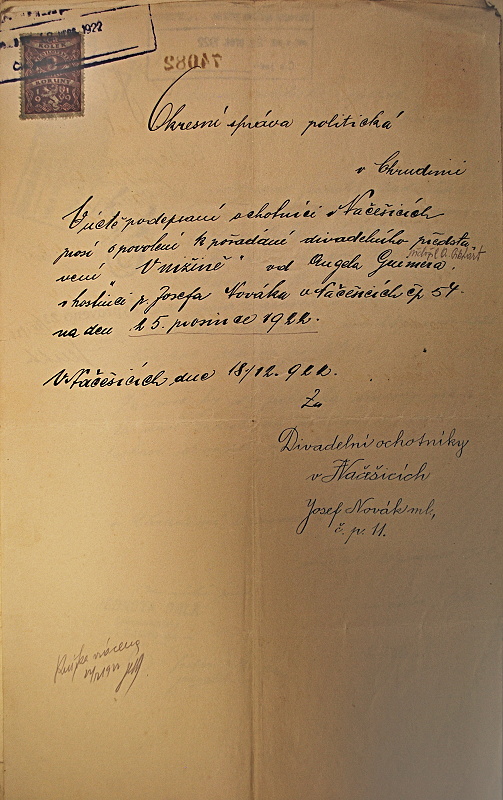 1922
KOLEK
KORUNY
74082
Okresní správa politická
v Chrudimi
Uctě podepsaní ochotníci v Načešicích
prosí o povolení k pořádání divadelního předsta
vení "V nížině" od Angela Guimera,
v hostinci p. Josefa Nováka v Načešicích čp 54.
na den 25. prosince 1922.
V Načešicích dne 18/12. 922.
Za
Divadelní ochotníky
v Načešicích
Josef Novák ml,
č. p. 11.